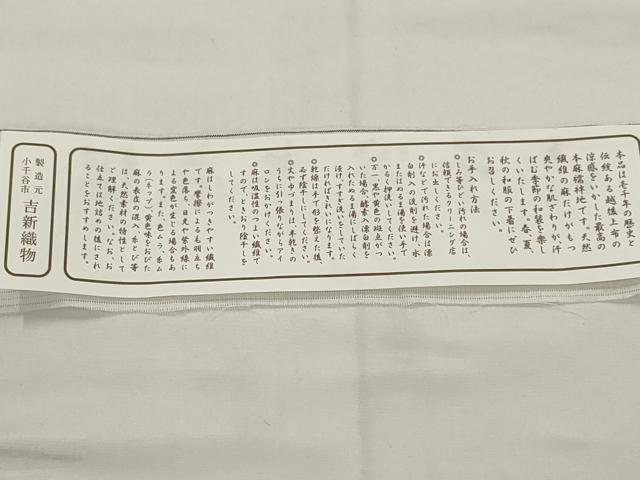 本品は壱千年の歴史と
伝統ある越後上布の
涼感をいかした最高の
本麻襦袢地です。天然
繊維の麻だけがもつ
爽やかな肌ざわりが、汗
ばむ季節の和装を楽し
くいたします。春、夏、
秋の和服の下着にぜひ
お召しください。
お手入れ方法
●しみ等ひどい汚れの場合は、
信頼できるクリーニング店
にお出しください。
●汗などで汚れた場合は漂
白剤入の洗剤を避け、水
またはぬるま湯を使い手で
かるく押洗いしてください。
●万一黒や黄色の斑点がつ
いた場合、酸素入漂白剤を
入れたぬるま湯にしばらく
浸け、すすぎ洗いをしていた
だければきれいになります。
●乾燥は手で形を整えた後、
必ず陰干しにしてください。
●丈や巾づまりは、半乾きの
うちに引っ張りながらアイ
ロンをおかけください。
●麻は吸湿性のつよい繊維で
すので、ときどきお陰干しを
してください。
麻はしわがつきやすい繊維
です。摩擦による毛羽立ち
や色落ち、日光や紫外線に
よる変色が生じる場合もあ
ります。また、色ムラ、糸ム
ラ(ネップ)、黄色味をおびた
麻の表皮の混入、糸とび等
は、天然素材の特性として
ご理解ください。なお、お
仕立ては地詰めの後にされ
ることをおすすめします。
製造元
小千谷市
吉新織物